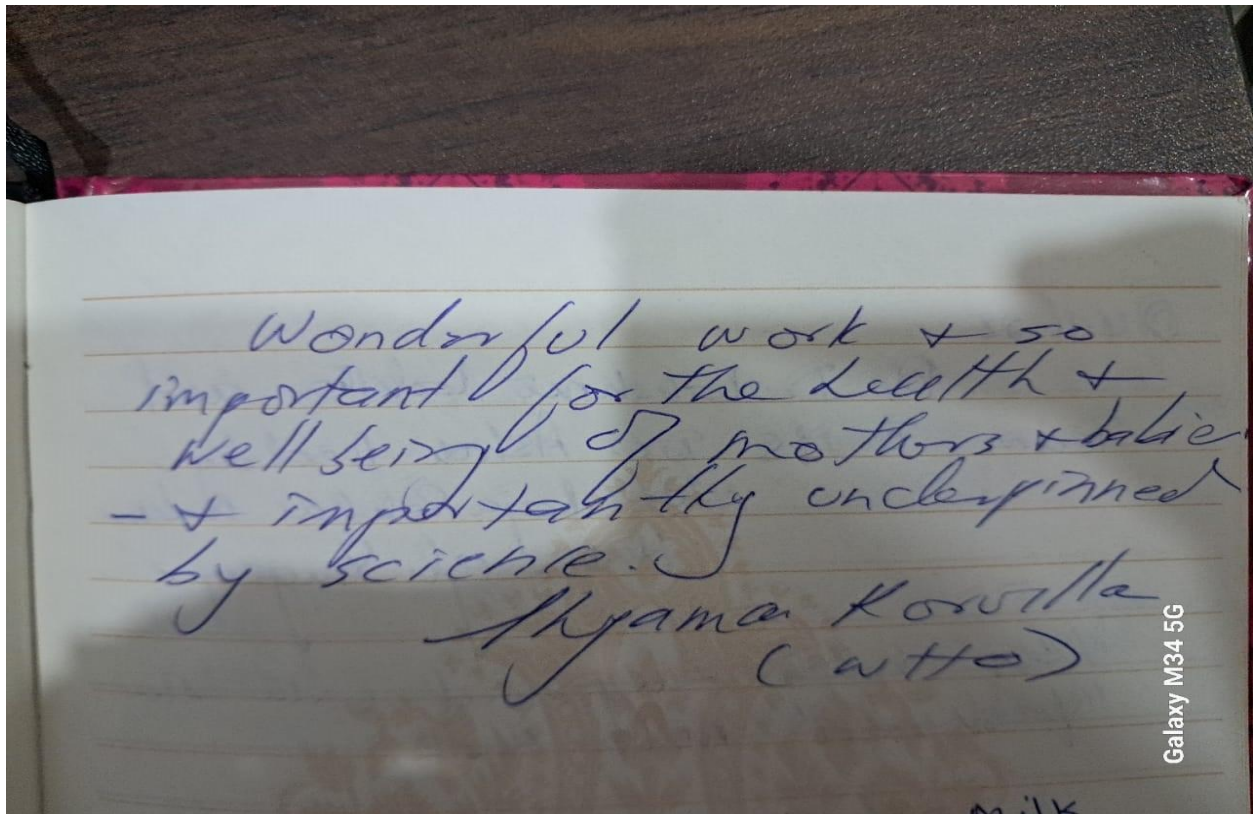 Wonderful work + so
important for the health +
wellbeing of mothers + babies
- + importantly underpinned
by science.
Shyama Kuruvilla
(WHO)
Galaxy M34 5G
Milk